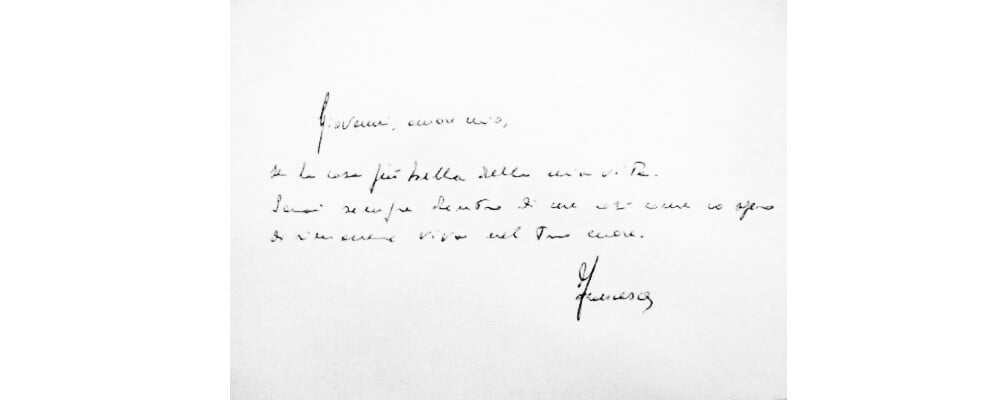 Giovanni, amor mio,
sei la cosa più bella della mia vita.
Sarai sempre dentro di me così come io spero
di rimanere viva nel tuo cuore.
Francesca